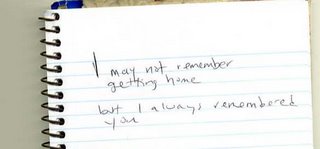 I may not remember
getting home
but I always remembered
you